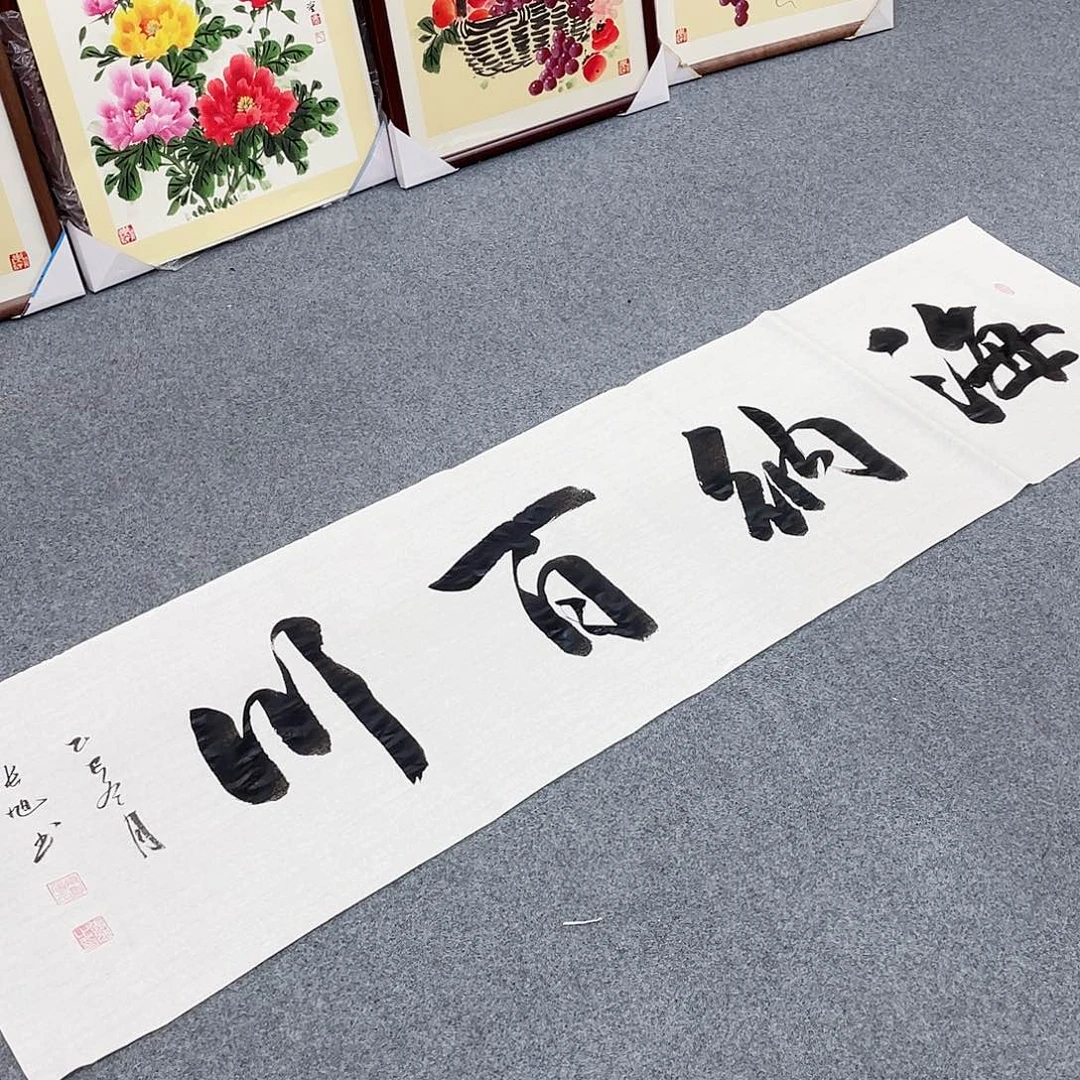 海纳百川
乙巳冬月
长旭书